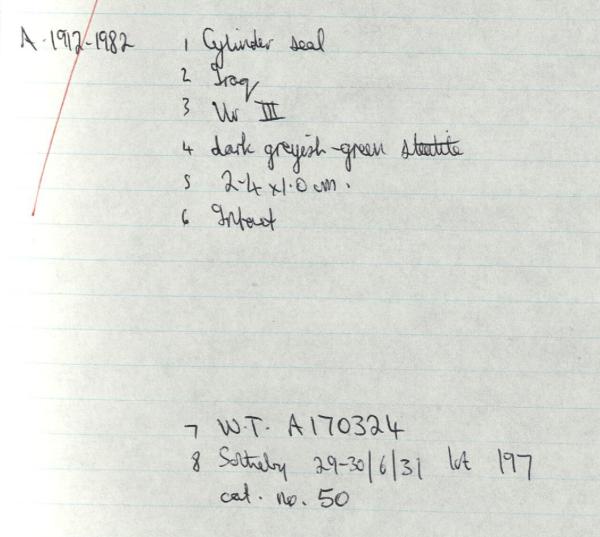 A.1912-1982
1 Cylinder seal
2 Iraq
3 Ur III
4 dark greyish-green steatite
5 2.4 x 1.0 cm.
6 Intact
7 W.T. A170324
8 Sotheby 29-30/6/31 lot 197
cat. no. 50